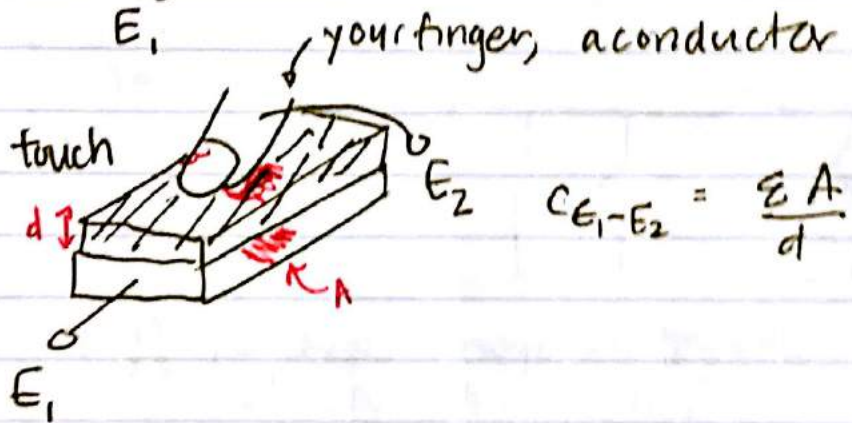 E₁
your finger, a conductor
touch
d
E₂
C_{E₁-E₂} = εA/d
A
E₁